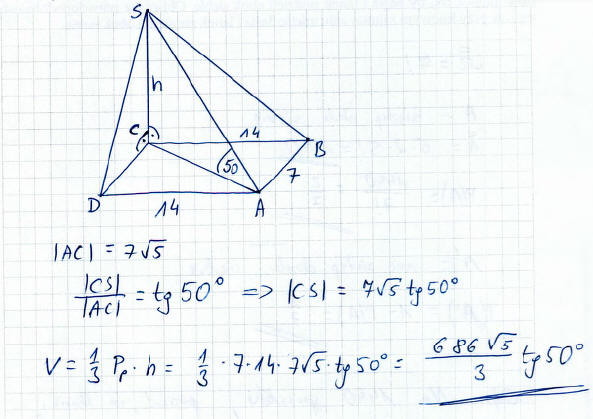 S
h
C
14
B
50
7
D
14
A
|AC| = 7√5
|CS|/|AC| = tg 50° => |CS| = 7√5 tg 50°
V = 1/3 Pp · h = 1/3 · 7 · 14 · 7√5 · tg 50° = 686√5/3 tg 50°